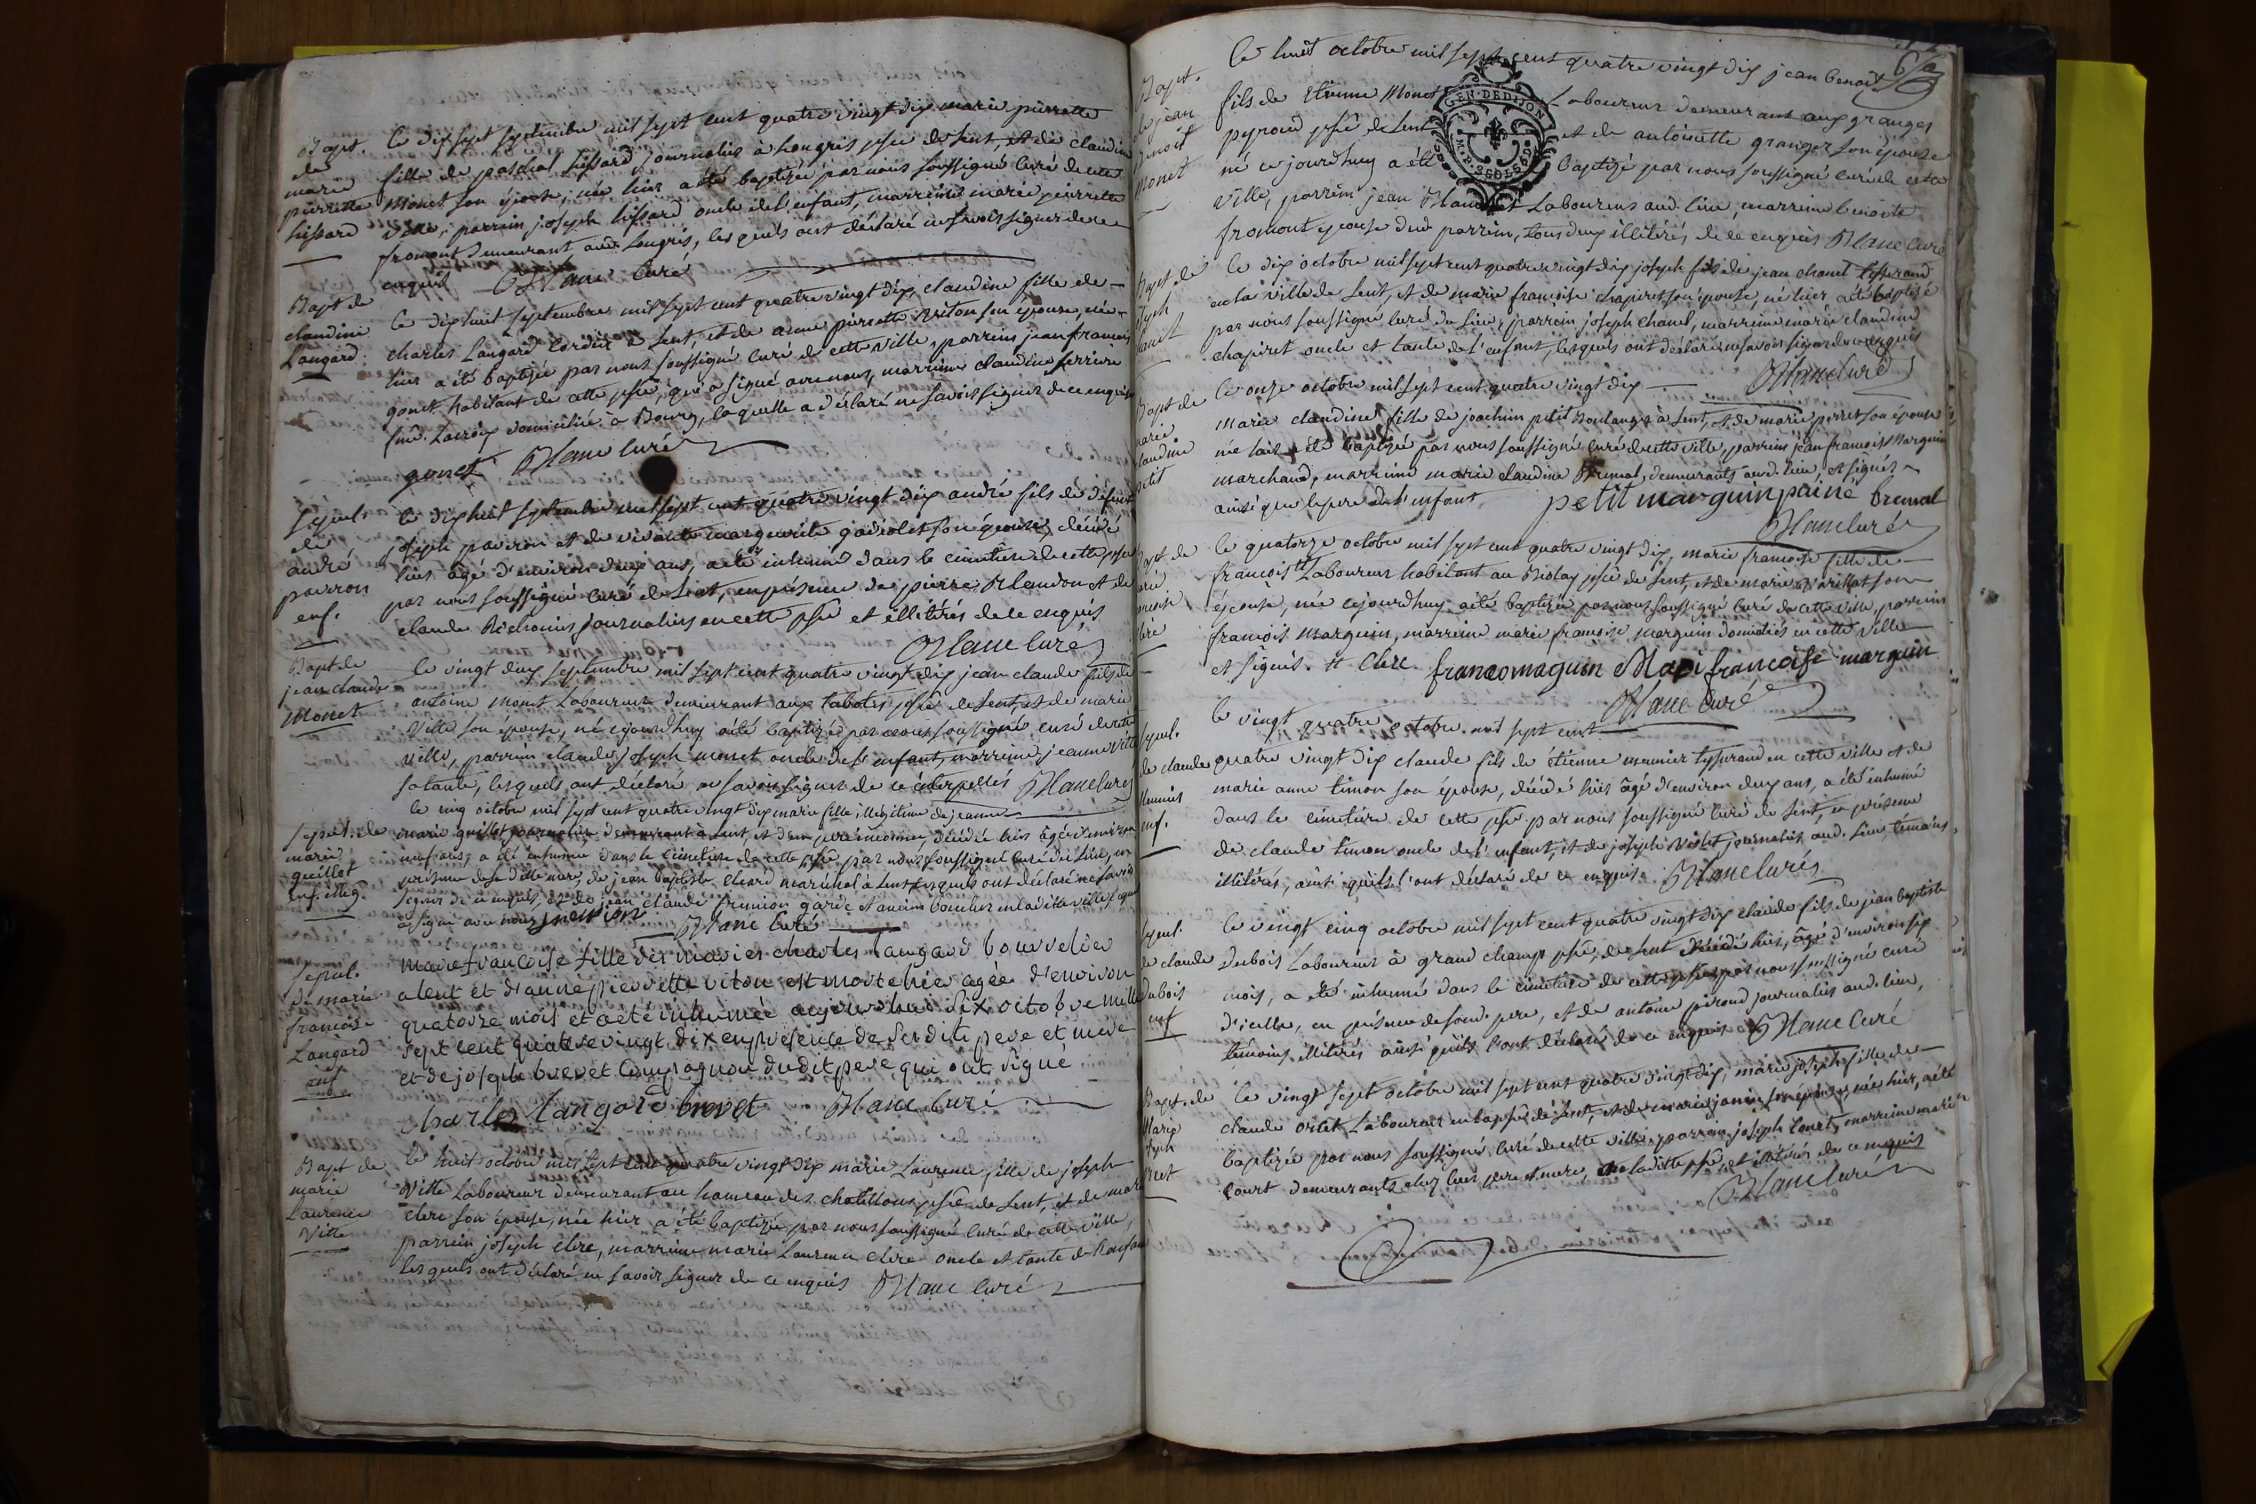 Bapt.
de
marie
pierrette
hissard
le dix sept septembre mil sept cent quatre vingt dix marie pierrette
fille de paschal hissard journalier à longris psse de lent, et de claudine
Monet son épouse, née hier a été baptizée par nous soussigné curé de cette
ville; parrein joseph hissard oncle de l'enfant, marreine marie peirrette
fromont demeurant aud. longris, lesquels ont déclaré ne savoir signer de ce
enquis Blanc Curé
Bapt de
claudine
Langard
le dixhuit septembre mil sept cent quatre vingt dix, claudine fille de
charles Langard cordier à Lent, et de anne pierrette viton son épouse, née
hier a été baptizée par nous soussigné curé de cette ville, parrein jean francois
gonet habitant de cette psse, qui a signé avec nous, marreine claudine ferriere
fme Lacroix domiciliée à Bourg, laquelle a déclaré ne savoir signer de ce enquise
gonet Blanc Curé
Sepul.
de
andré
pavrion
enf.
le dixhuit septembre mil sept cent quatre vingt dix andré fils de défunt
joseph pavrion et de vivante marguerite gaviolet son épouse, décédé
hier agé d'environ deux ans, a été inhumé dans le cimetiere de cette psse
par nous soussigné curé de Lent, en présence de pierre Blandon et de
claude Bichonier journaliers en cette psse et illiterés de ce enquis
Blanc Curé
Bapt de
jean claude
Monet
le vingt deux septembre mil sept cent quatre vingt dix jean claude fils de
antoine monet Laboureur demeurant aux tabotes psse de Lent, et de marie
Ville son épouse, né cejourdhuy a été baptizé par nous soussigné curé de cette
ville, parrein claude joseph monet oncle de l'enfant, marreine jeanne ville
sa tante, lesquels ont déclaré ne savoir signer de ce interpellés Blanc Curé
Sepul. de
marie
guillot
enf. illeg.
le cinq octobre mil sept cent quatre vingt dix marie fille illégitime de jeanne
marie guillot journaliere demeurant à Lent et d'un pere inconnu, décédée hier agée d'environ
neuf ans, a été inhumée dans le cimetiere de cette psse par nous soussigné curé du lieu, en
présence de sa ditte mere, de jean baptiste chard maréchal à Lent lesquels ont déclaré ne savoir
signer de ce enquis, et de jean claude prunion garde et ancien boucher en la ditte ville lequel
a signé avec nous prunion
Blanc Curé
Sepul.
de marie
françoise
Langard
enf
marie francoise fille des maries charles langard bourrelier
a lent et d'anne pierrette viton est morte hier agée d'environ
quatorze mois et a eté inhumée aujourdhui six octobre mille
sept cent quatre vingt dix en presence de ses dits pere et mere
et de joseph brevet compagnon du dit pere qui ont signe
charles langard brevet Blanc Curé
Bapt de
marie
Laurence
Ville
le huit octobre mil sept cent quatre vingt dix marie Laurence fille de joseph
Ville Laboureur demeurant au hameau des chatillons psse de Lent, et de marie
clere son épouse, née hier a été baptizée par nous soussigné curé de cette ville,
parrein joseph clere, marreine marie Laurence clere oncle et tante de l'enfant
lesquels ont déclaré ne savoir signer de ce enquis Blanc Curé
6
GEN. DE DIJON
Bapt.
de jean
benoit
Monet
le huit octobre mil sept cent quatre vingt dix jean benoit
fils de Etienne Monet Laboureur demeurant aux granges
peyroud psse de Lent et de antoinette granger son épouse
né ce jourdhuy a été baptizé par nous soussigné curé de cette
ville, parrein jean Monet Laboureur aud. lieu, marreine benoite
fromont épouse dud parrein, tous deux illiterés de ce enquis Blanc Curé
Bapt de
joseph
chanel
le dix octobre mil sept cent quatre vingt dix joseph fils de jean chanel tisserand
en la ville de Lent, et de marie francoise chapiret son épouse, né hier a été baptisé
par nous soussigné curé du lieu, parrein joseph chanel, marreine marie claudine
chapiret oncle et tante de l'enfant, lesquels ont déclaré ne savoir signer de ce enquis
Blanc Curé
Bapt de
marie
claudine
petit
le onze octobre mil sept cent quatre vingt dix
marie claudine fille de joachim petit boulanger à Lent, et de marie perret son épouse
née hier a été baptizée par nous soussigné curé de cette ville, parrein jean francois Marguin
marchand, marreine marie claudine Brunal, demeurants aud. lieu, et signés
ainsi que le pere de l'enfant. petit marguin painé brunal
Blanc Curé
Bapt de
marie
francoise
clere
le quatorze octobre mil sept cent quatre vingt dix, marie francoise fille de
francois # Laboureur habitant au Biolay psse de Lent, et de marie varillat son
épouse, née cejourdhuy a été baptizée par nous soussigné curé de cette ville, parrein
francois marguin, marreine marie francoise marguin domiciliés en cette ville
et signés. # Clere francomaguin Mari francoise marguin
Blanc Curé
Sepul.
de claude
Meunier
enf.
le vingt quatre octobre mil sept cent
quatre vingt dix claude fils de étienne meunier tisserand en cette ville et de
marie anne timon son épouse, décédé hier âgé d'environ deux ans, a été inhumé
dans le cimetiere de cette psse par nous soussigné curé de Lent, en présence
de claude timon oncle de l'enfant, et de joseph violet journalier aud. lieu, témoins
illiterés, ainsi qu'ils l'ont déclaré de ce enquis. Blanc Curé
Sepul.
de claude
Dubois
enf
le vingt cinq octobre mil sept cent quatre vingt dix claude fils de jean baptiste
Dubois Laboureur à grand champ psse de Lent décédé hier, âgé d'environ six
mois, a été inhumé dans le cimetiere de cette psse par nous soussigné curé
d'icelle, en présence de sond. pere, et de antoine péroud journalier aud. lieu,
témoins illiterés ainsi qu'ils l'ont déclaré de ce enquis Blanc Curé
Bapt. de
Marie
joseph
le vingt sept octobre mil sept cent quatre vingt dix, marie joseph fille de
claude Laboureur en la psse de Lent, et de marie janin son épouse, née hier, a été
baptizée par nous soussigné curé de cette ville, parrein joseph court, marreine marie
court demeurants chez leurs pere et mere, en la ditte psse, et illiterés de ce enquis
Blanc Curé